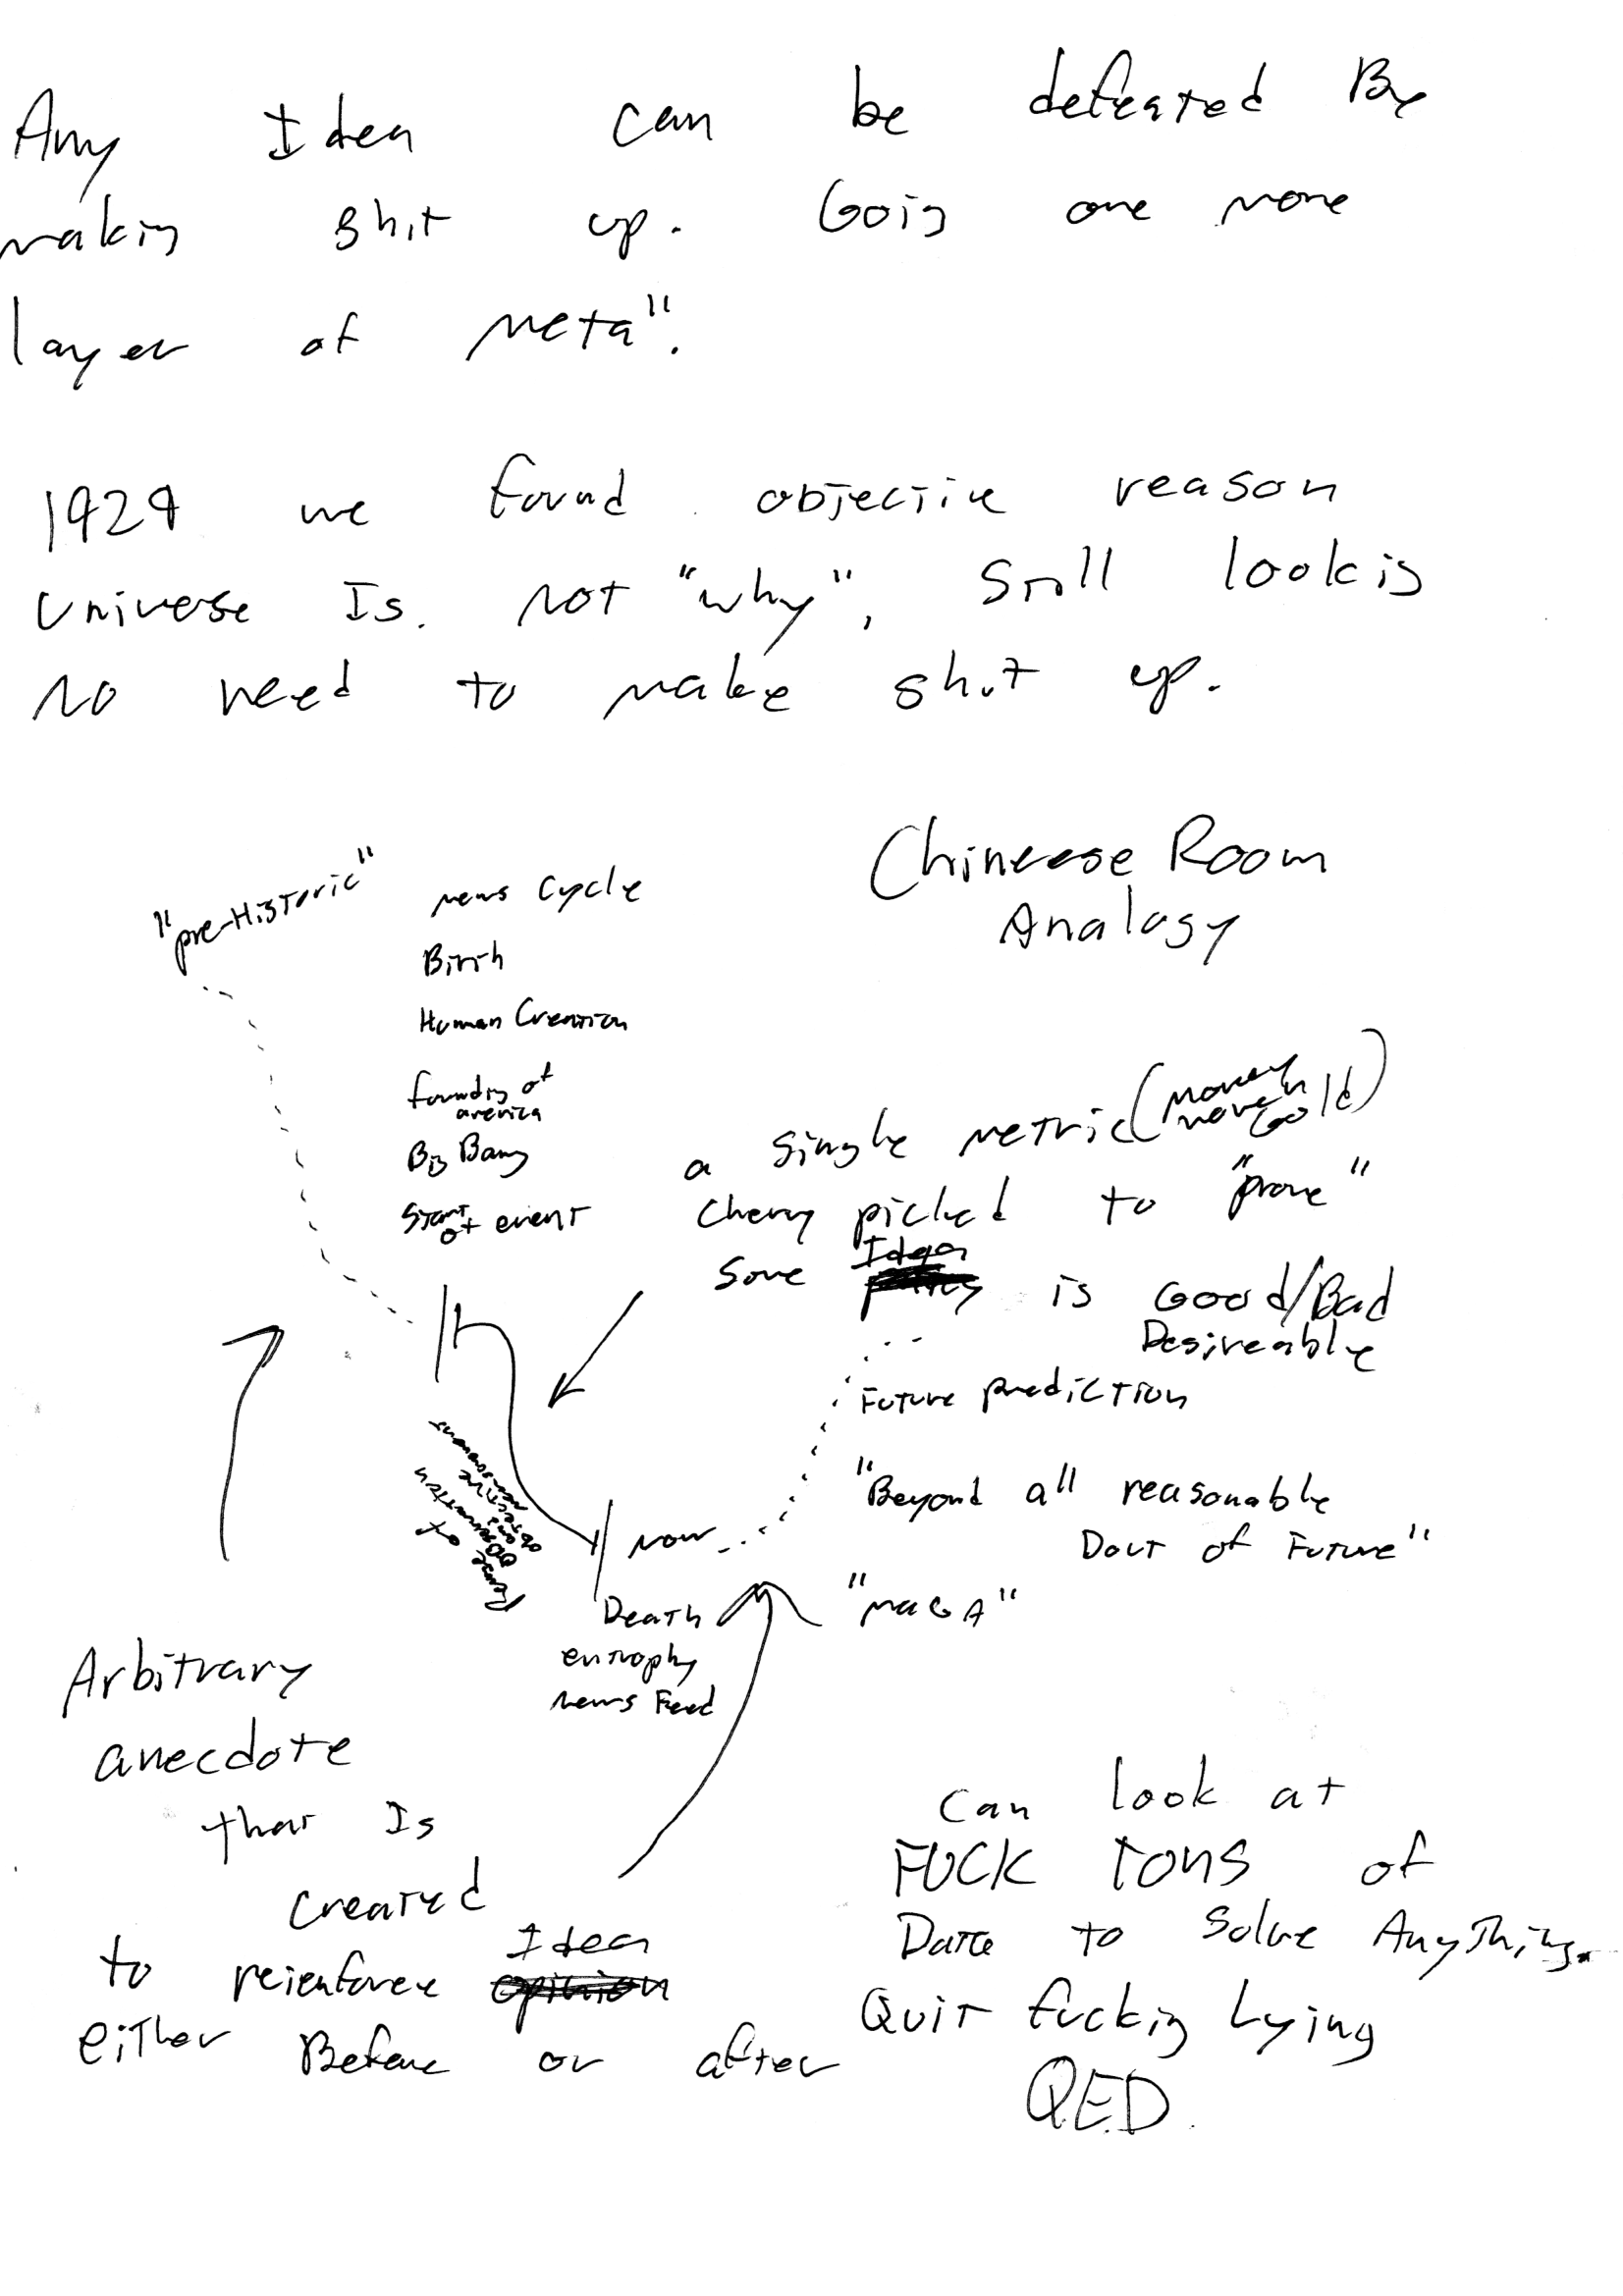 Any Idea can be defeated By
making shit up. Going one more
layer of meta".
1929 we found objective reason
Universe Is. Not "why", Still looking
No need to make shit up.
Chineese Room
Analogy
"pre-Historic"
news cycle
Birth
Human Creation
founding of
america
Big Bang
Start of event
a single metric (money
Gold)
Cherry picked to "prove"
some Idea is Good/Bad
Desireable
Future prediction
"Beyond all reasonable
Dout of Future"
"MAGA"
now
Death
entrophy
news Feed
Arbitrary
anecdote
that Is
created
to reienforce Idea
either Before or after
Can look at
FUCK TONS of
Data to solve AnyThing.
Quit fucking Lying
QED.